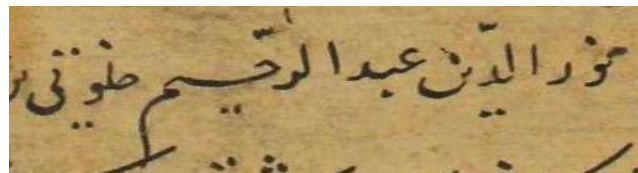 نور الدّين عبد الرّحيم خلوتى